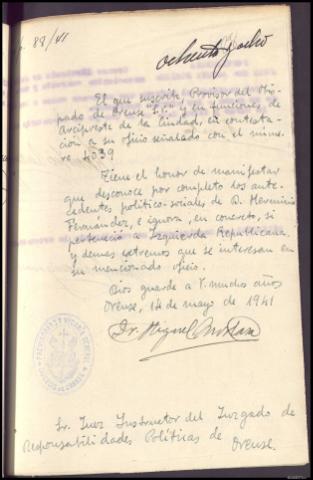 88/41
ochenta y ocho
El que suscribe Provisor del Obis-
pado de Orense S.P. y en funciones de
Arcipreste de la Ciudad, en contesta-
ción a su oficio señalado con el núme-
ro 4039
Tiene el honor de manifestar
que desconoce por completo los ante-
cedentes politico-sociales de D. Herminio
Fernández, e ignora, en concreto, si
perteneció a Izquierda Republicana
y demas extremos que se interesan en
su mencionado oficio.
Dios guarde a V. muchos años
Orense, 14 de mayo de 1941
Dr. Miguel
Sr. Juez Instructor del Juzgado de
Responsabilidades Políticas de Orense.